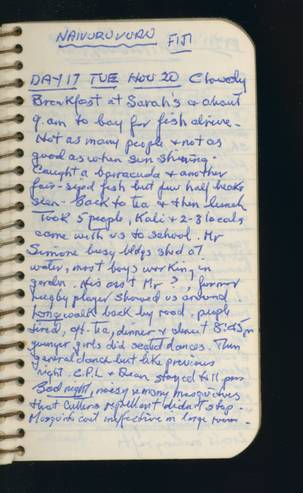 NAIVURUVURU
FIJI
DAY 17 TUE NOV 20 Cloudy
Breakfast at Sarah's & about
9 am to bay for fish drive.
Not as many people & not as
good as when sun shining.
Caught a baracuda & another
fair-sized fish but few half beaks
seen. Back to tea & then lunch.
Took 5 people, Kali & 2-3 locals
came with us to school. Mr
Simione busy bldgs shed at
water, most boys working in
garden. His asst Mr ?, former
rugby player showed us around
Long walk back by road, people
tired, aft. tea, dinner & about 8:45pm
younger girls did seated dances. Then
general dance but like previous
night. C.P.L & Dean stayed till
Bad night, noisy & many mosquitoes
that Cutters repellent didn't stop.
Mosquito coil ineffective in large room.